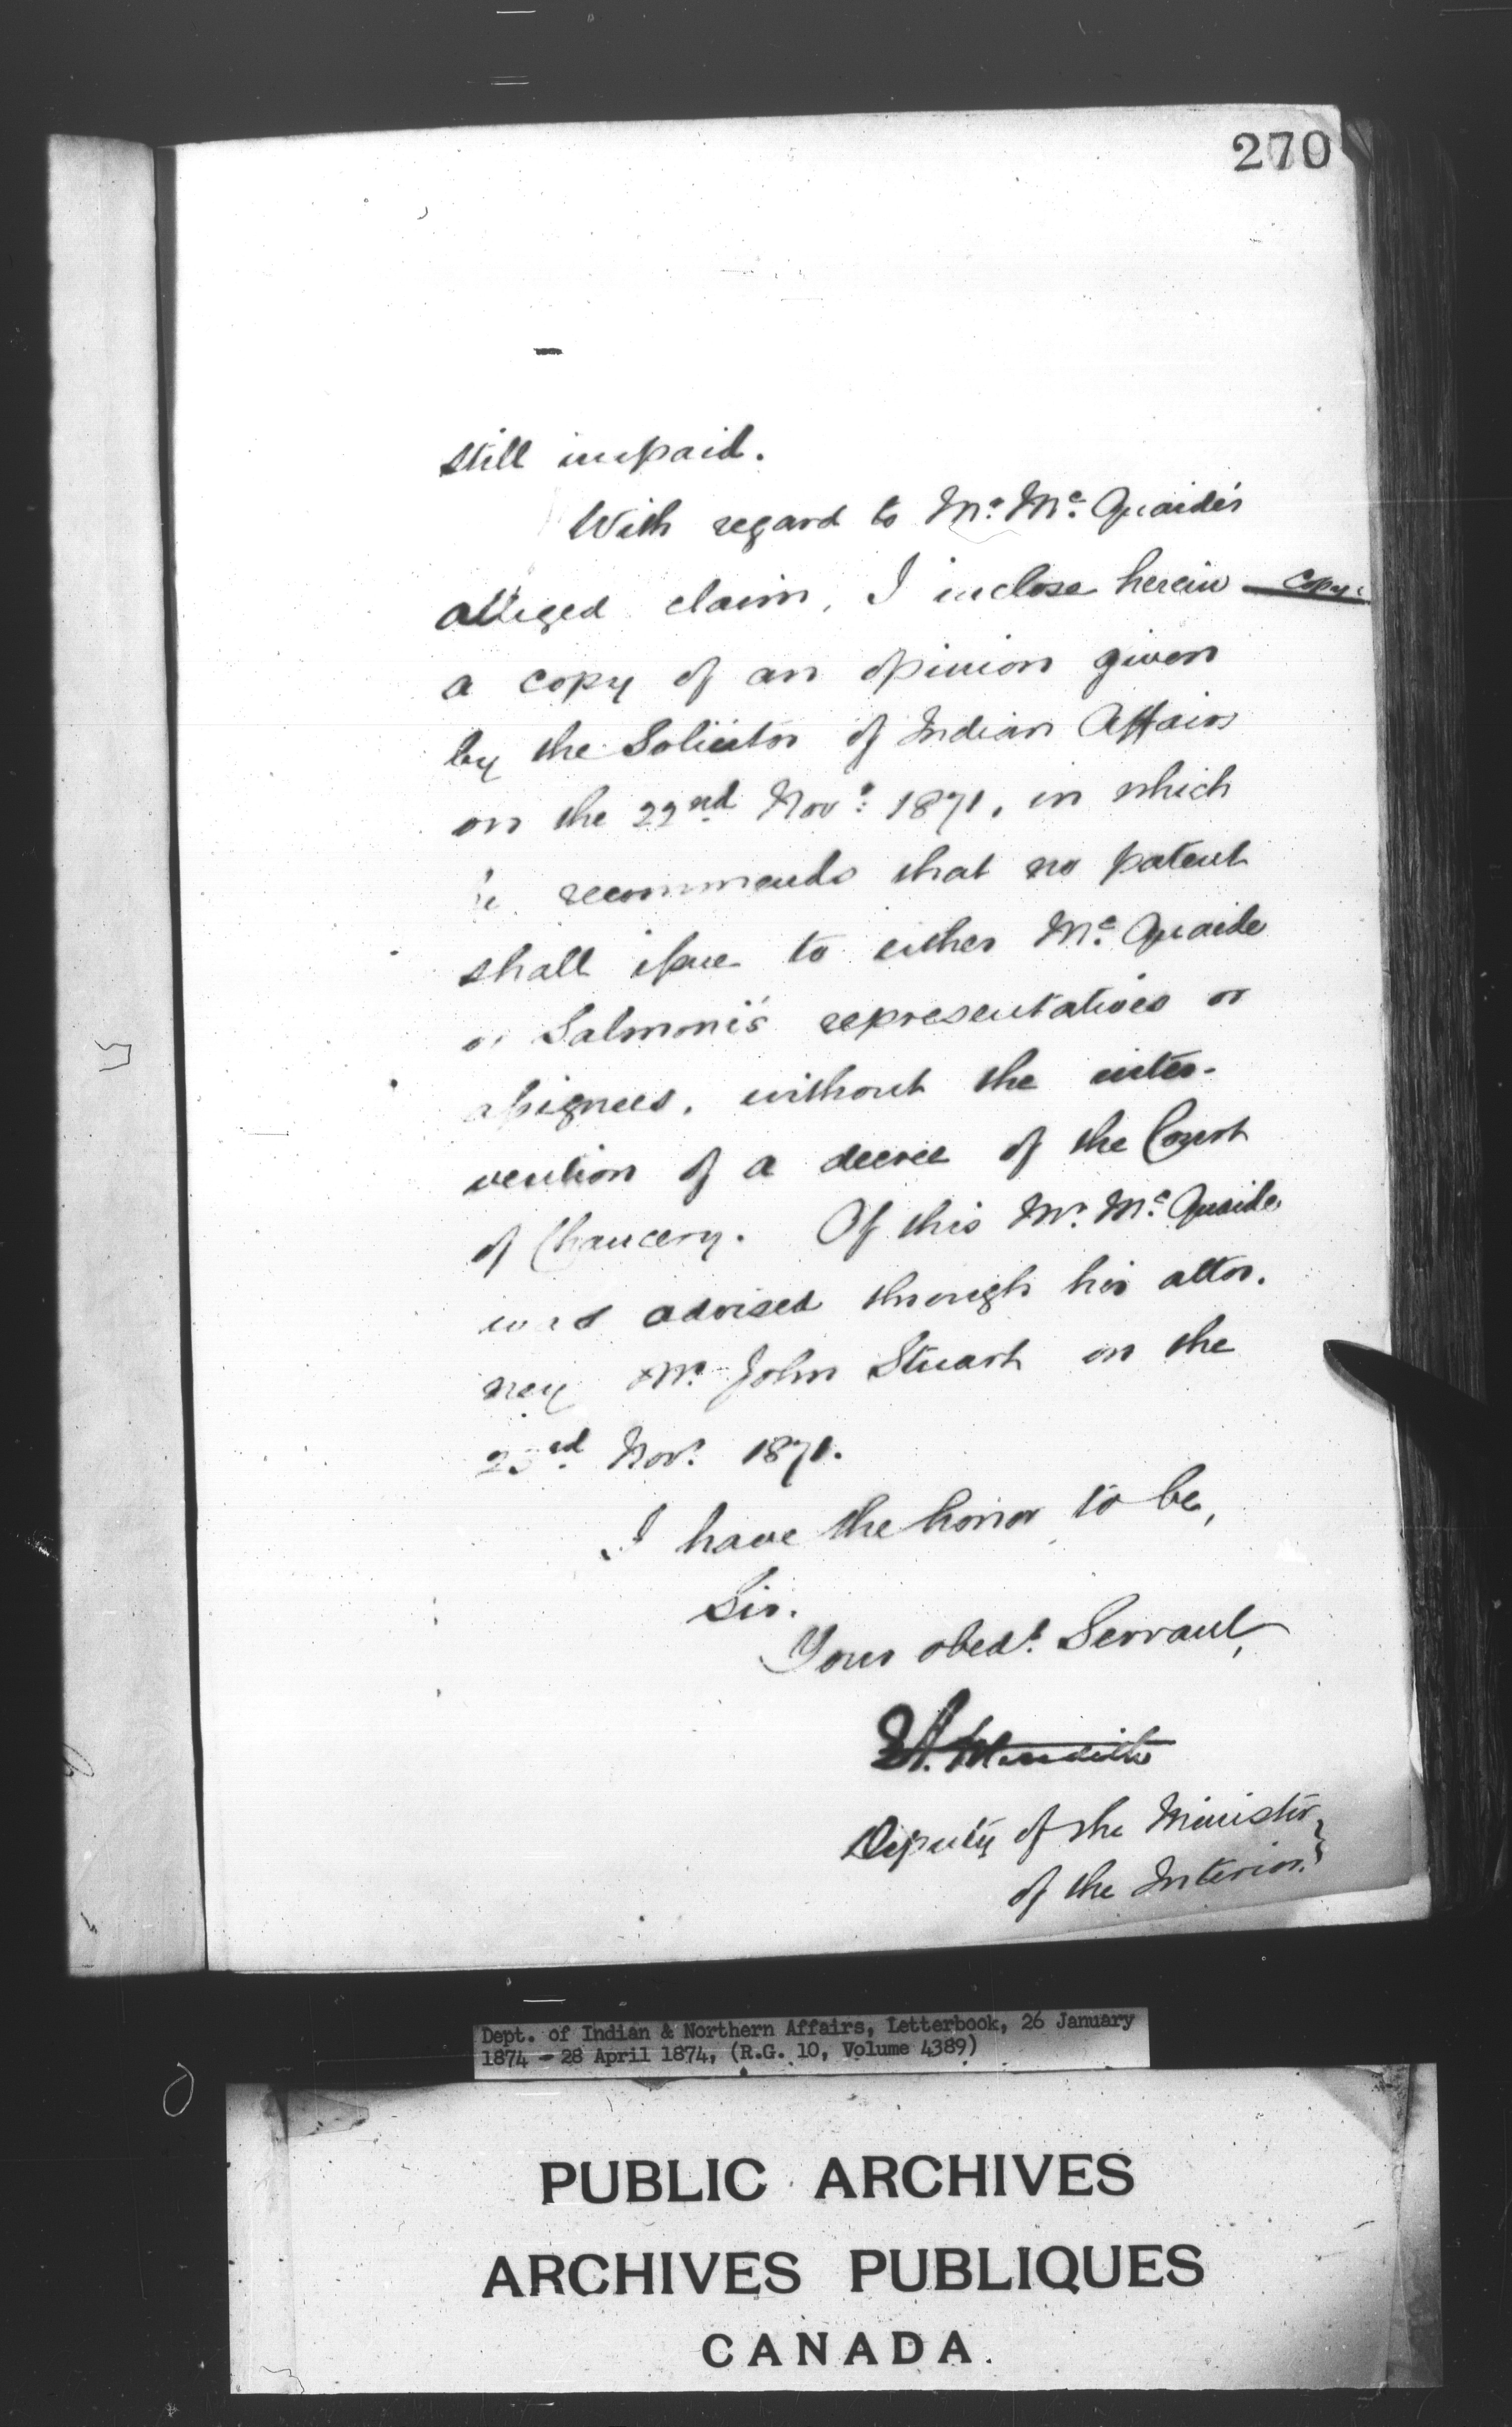 270
still unpaid.
With regard to Mr. Mc. Quaide's
alleged claim, I inclose herein — Copy.
a copy of an opinion given
by the Solicitor of Indian Affairs
on the 22nd Nov: 1871, in which
he recommends that no patent
shall issue to either Mc. Quaide
or Salmoni's representatives or
assignees, without the inter-
vention of a decree of the Court
of Chancery. Of this Mr. Mc. Quaide
was advised through his attor.
ney Mr. John Stuart on the
23rd Nov. 1871.
I have the honor to be,
Sir.
Your obedt. Servant,
E.A. Meredith
Deputy of the Minister
of the Interior.
Dept. of Indian & Northern Affairs, Letterbook, 26 January
1874 - 28 April 1874, (R.G. 10, Volume 4389)
PUBLIC ARCHIVES
ARCHIVES PUBLIQUES
CANADA.